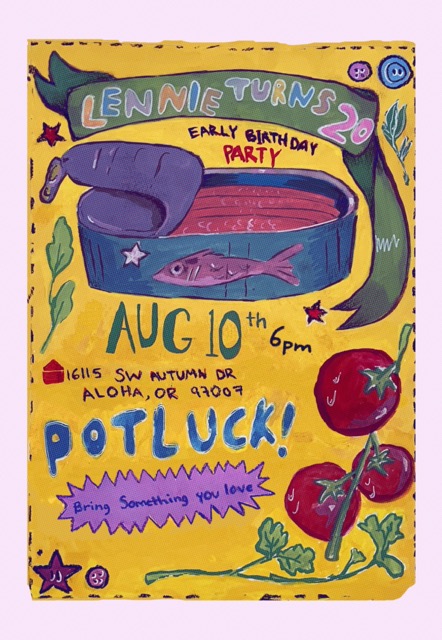 LENNIE TURNS 20
EARLY BIRTHDAY
PARTY
AUG 10th 6pm
16115 SW AUTUMN DR
ALOHA, OR 97007
POTLUCK!
Bring Something you love